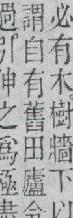 必有木樹牆下以
謂自有舊田廬令
過引伸之爲極盡